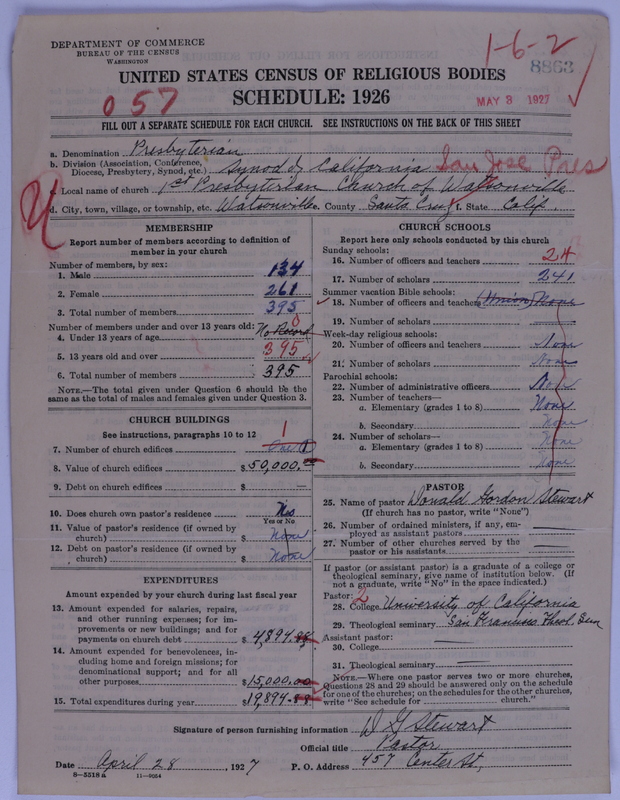 DEPARTMENT OF COMMERCE
BUREAU OF THE CENSUS
WASHINGTON
1-6-2
8863
UNITED STATES CENSUS OF RELIGIOUS BODIES
SCHEDULE: 1926
057
MAY 3 1927
FILL OUT A SEPARATE SCHEDULE FOR EACH CHURCH. SEE INSTRUCTIONS ON THE BACK OF THIS SHEET
a. Denomination Presbyterian
b. Division (Association, Conference, Diocese, Presbytery, Synod, etc.) Synod of California San Jose Pres
c. Local name of church 1st Presbyterian Church of Watsonville
d. City, town, village, or township, etc. Watsonville e. County Santa Cruz f. State Calif.
MEMBERSHIP
Report number of members according to definition of
member in your church
Number of members, by sex:
1. Male 134
2. Female 261
3. Total number of members 395
Number of members under and over 13 years old:
4. Under 13 years of age No Record 0
5. 13 years old and over 395
6. Total number of members 395
NOTE.—The total given under Question 6 should be the
same as the total of males and females given under Question 3.
CHURCH BUILDINGS
See instructions, paragraphs 10 to 12
7. Number of church edifices One 1
8. Value of church edifices $50,000.
9. Debt on church edifices $ —
10. Does church own pastor's residence No
Yes or No
11. Value of pastor's residence (if owned by
church) $ None
12. Debt on pastor's residence (if owned by
church) $ None
EXPENDITURES
Amount expended by your church during last fiscal year
13. Amount expended for salaries, repairs,
and other running expenses; for im-
provements or new buildings; and for
payments on church debt $ 4,894.
14. Amount expended for benevolences, in-
cluding home and foreign missions; for
denominational support; and for all
other purposes $15,000.00
15. Total expenditures during year $19,894.
CHURCH SCHOOLS
Report here only schools conducted by this church
Sunday schools:
16. Number of officers and teachers 24
17. Number of scholars 241
Summer vacation Bible schools:
18. Number of officers and teachers (Union) None
19. Number of scholars
Week-day religious schools:
20. Number of officers and teachers None
21. Number of scholars None
Parochial schools:
22. Number of administrative officers None
23. Number of teachers—
a. Elementary (grades 1 to 8) None
b. Secondary None
24. Number of scholars—
a. Elementary (grades 1 to 8) None
b. Secondary None
PASTOR
25. Name of pastor Donald Gordon Stewart
(If church has no pastor, write "None")
26. Number of ordained ministers, if any, em-
ployed as assistant pastors
27. Number of other churches served by the
pastor or his assistants
If pastor (or assistant pastor) is a graduate of a college or
theological seminary, give name of institution below. (If
not a graduate, write "No" in the space indicated.)
Pastor: 2
28. College University of California
29. Theological seminary San Francisco Theol. Sem
Assistant pastor:
30. College
31. Theological seminary
NOTE.—Where one pastor serves two or more churches,
Questions 28 and 29 should be answered only on the schedule
for one of the churches; on the schedules for the other churches,
write "See schedule for church."
Signature of person furnishing information D G Stewart
Official title Pastor
Date April 28, 1927 P. O. Address 457 Center St.,
8—5518 a 11—9054